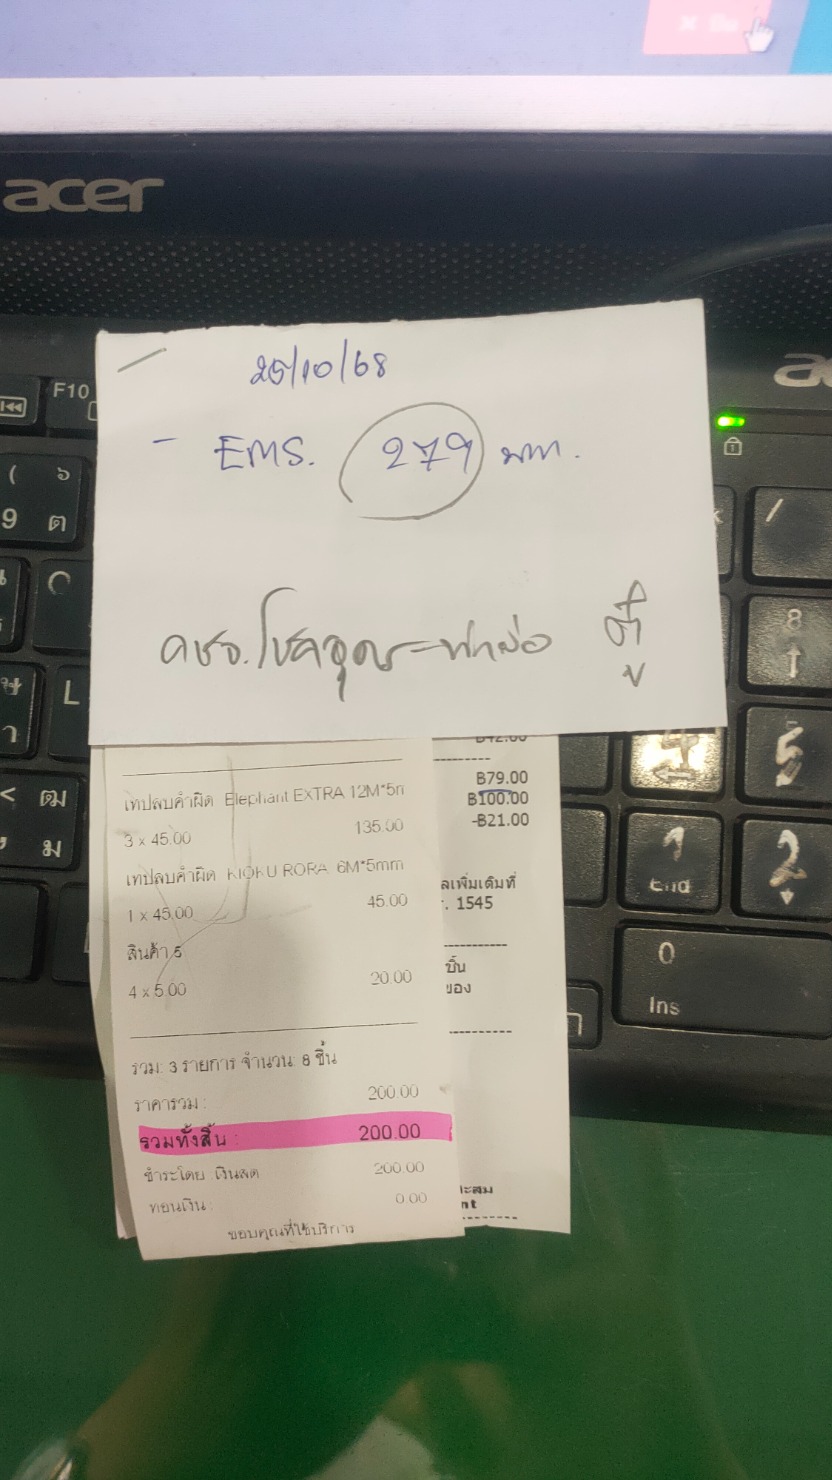 acer
F10
9 ต
L
25/10/68
- EMS. 279 บาท.
฿79.00
฿100.00
-฿21.00
เทปลบคำผิด Elephant EXTRA 12M*5m
3 x 45.00 135.00
เทปลบคำผิด KIOKU RORA 6M*5mm
1 x 45.00 45.00
สินค้า 5
4 x 5.00 20.00
รวม: 3 รายการ จำนวน: 8 ชิ้น
ราคารวม : 200.00
รวมทั้งสิ้น : 200.00
ชำระโดย เงินสด 200.00
ทอนเงิน : 0.00
ขอบคุณที่ใช้บริการ
ลเพิ่มเติมที่
. 1545
ชิ้น
ของ
ะสม
nt
/
8
4
5
1
End
2
0
Ins